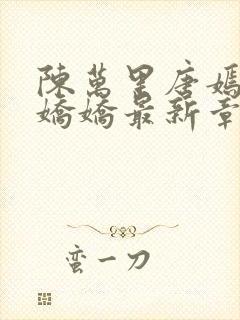 陳萬里唐嫣
嬌嬌最新章
蛮一刀